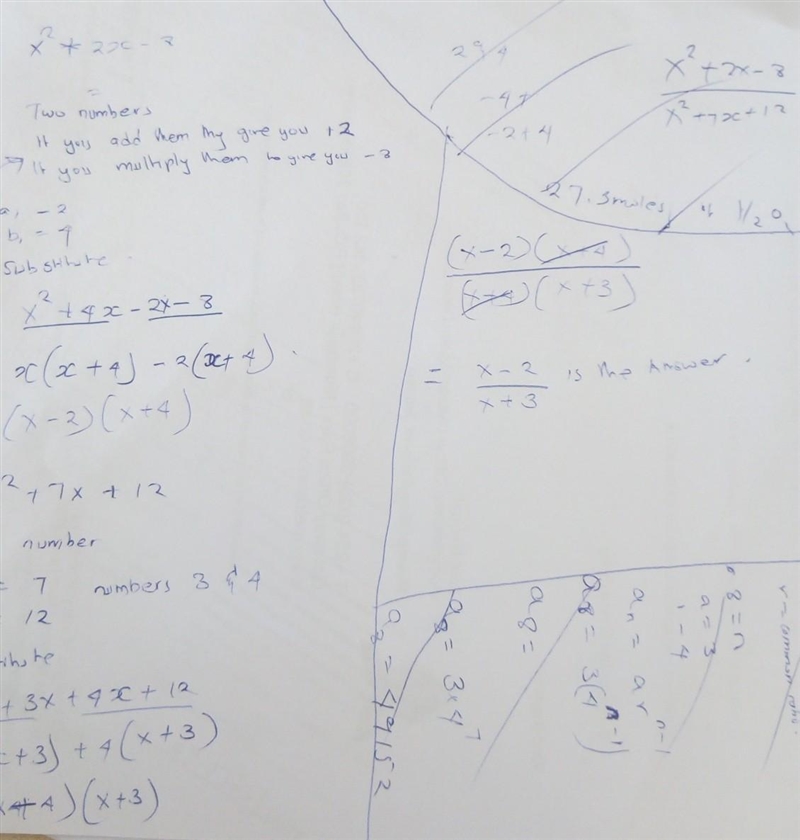 x² + 2x - 8
=
Two numbers
If you add them thy give you +2
→ If you multiply them to give you - 8
a, - 2
b, = 4
Substitute
x² + 4x - 2x - 8
x(x + 4) - 2(x + 4).
(x - 2)(x + 4)
² + 7x + 12
number
= 7 numbers 3 & 4
12
+ 3x + 4x + 12
+ 3) + 4(x + 3)
4)(x + 3)
2 & 4
- 4 +
- 2 + 4
x² + 2x - 8
x² + 7x + 12
27.3 moles of 1/2 O,
(x - 2)(x + 4)
(x + 4)(x + 3)
= x - 2 is the Answer.
x + 3
8 = n
a = 3
r = 4
aₙ = ar ⁿ⁻¹
a₈ = 3(4 ⁿ⁻¹)
a₈ =
a₈ = 3 × 4⁷
a₈ = 49152